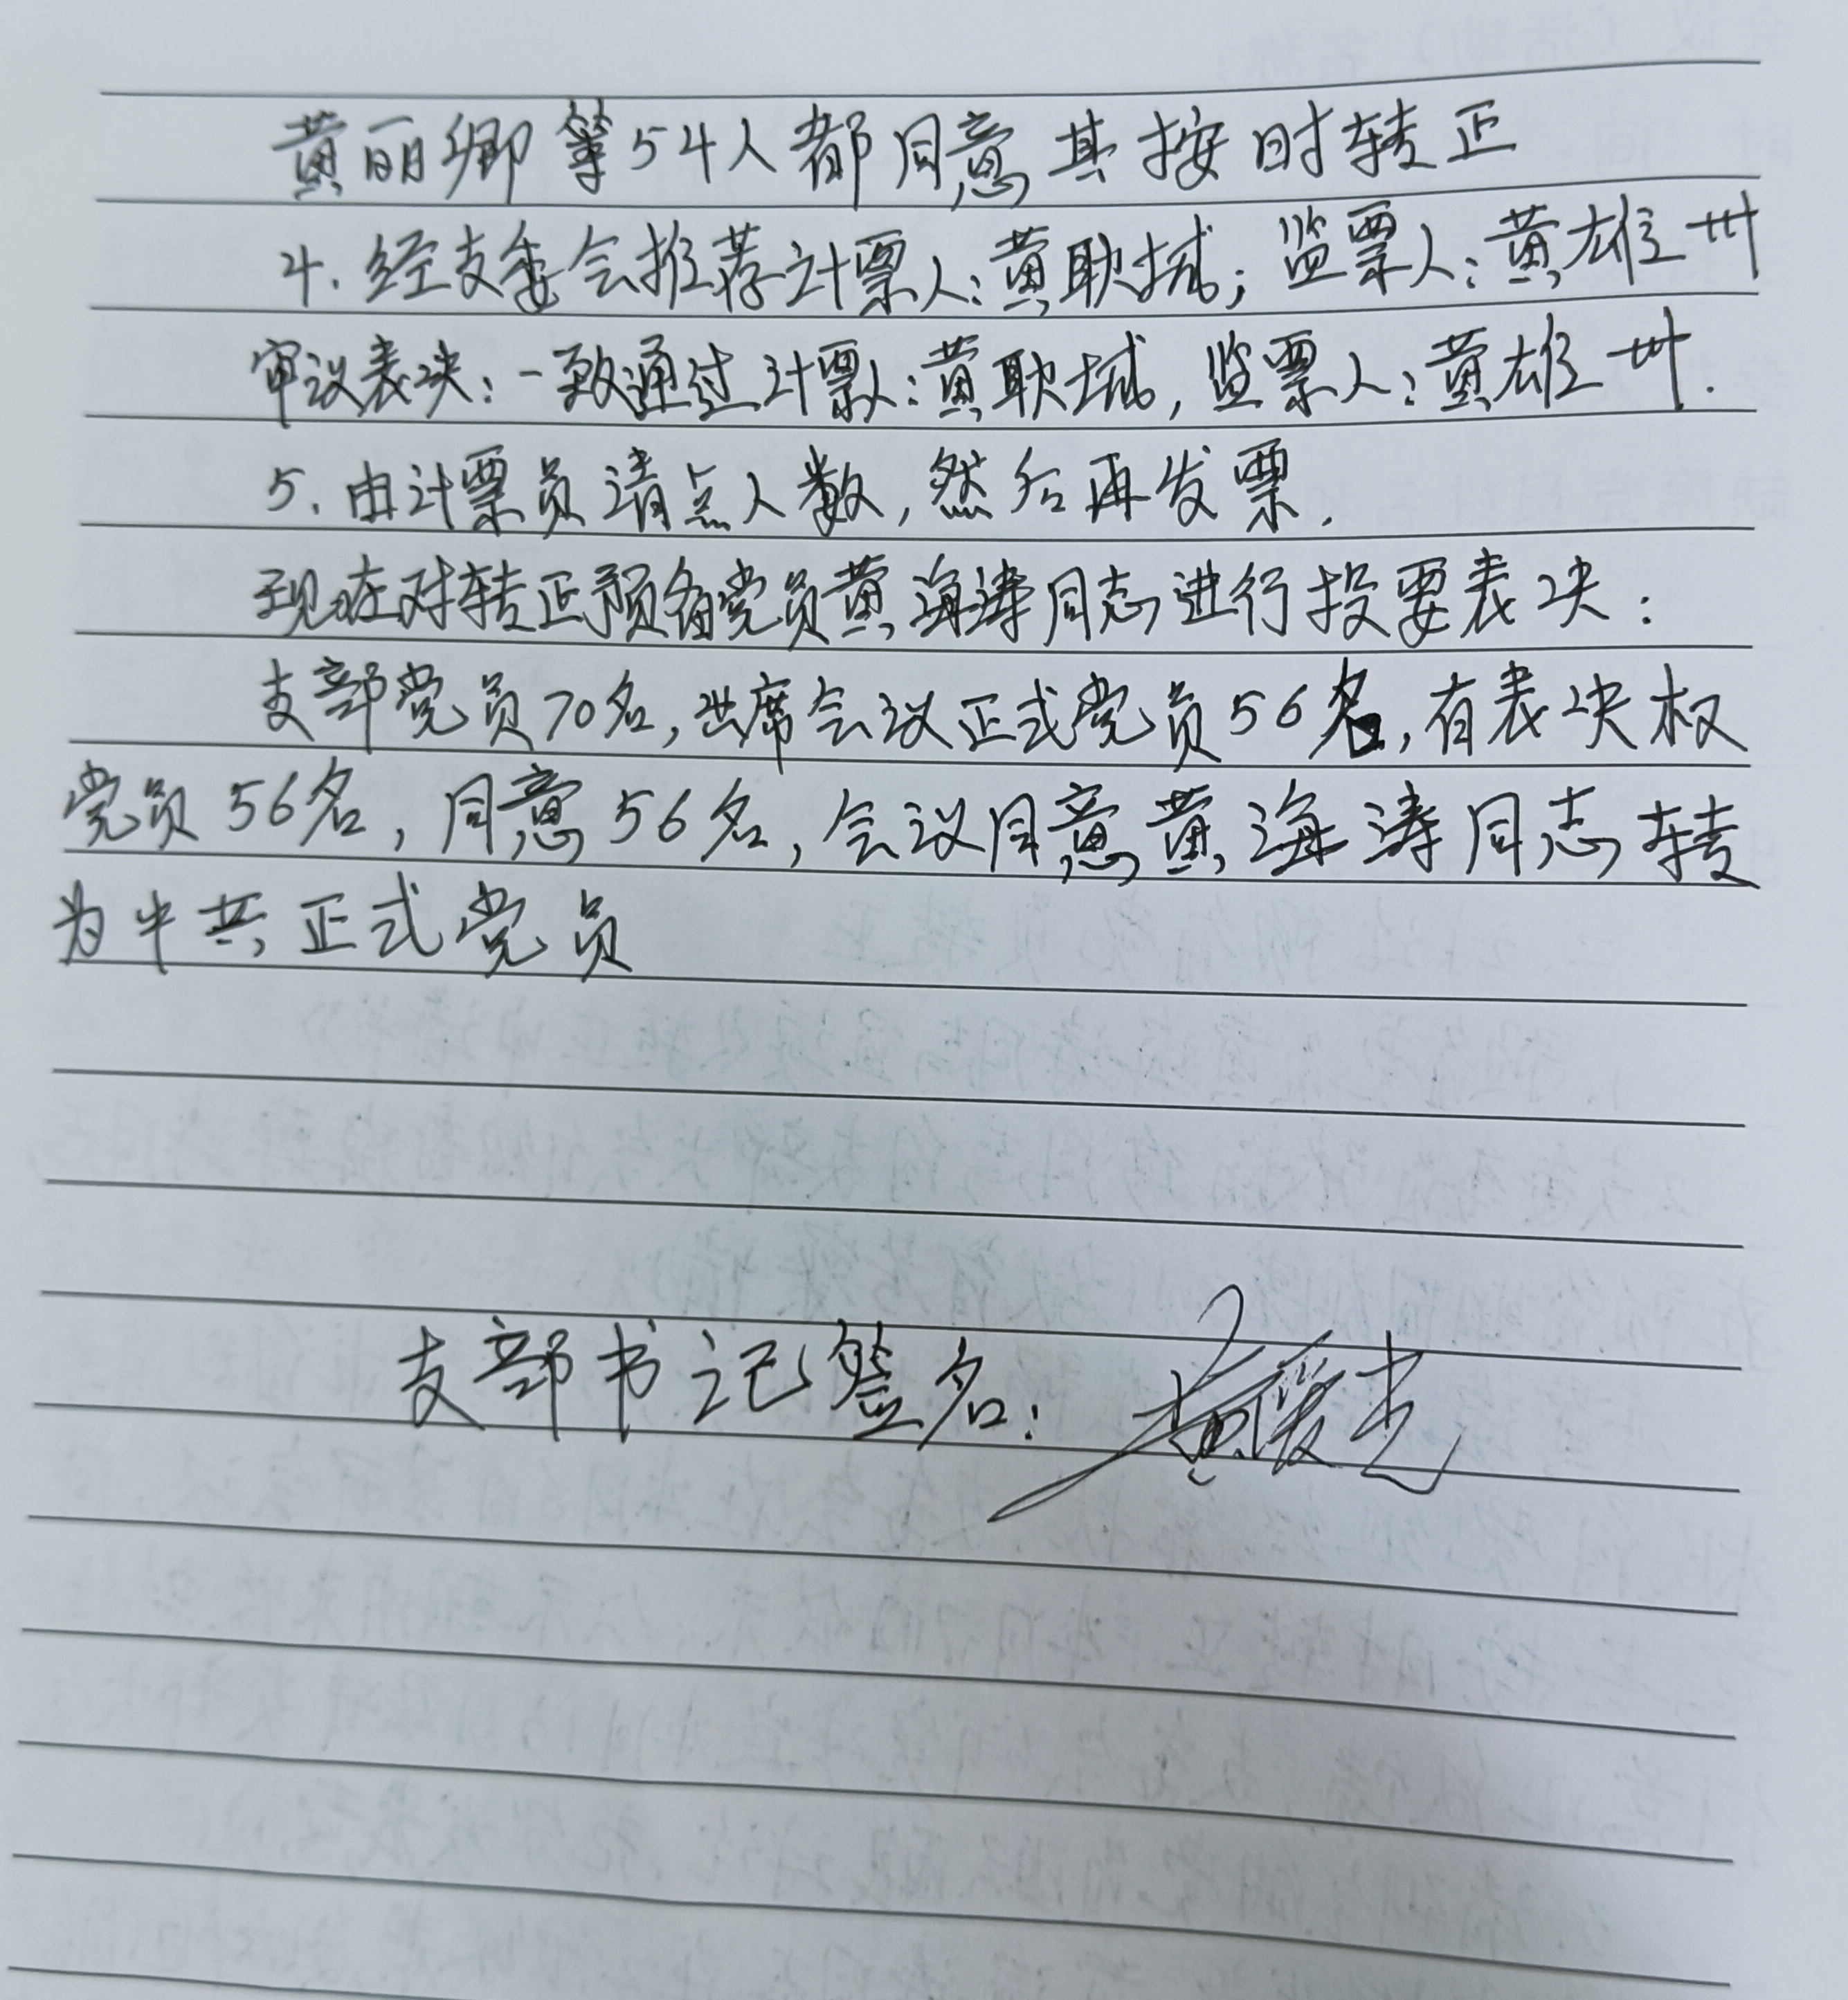 黄丽卿等54人都同意其按时转正
4.经支委会推荐计票人:黄耿城;监票人:黄雄卅
审议表决:一致通过计票人:黄耿城,监票人:黄雄卅.
5.由计票员清点人数,然后再发票.
现在对转正预备党员黄海涛同志进行投票表决:
支部党员70名,出席会议正式党员56名,有表决权
党员56名,同意56名,会议同意黄海涛同志转
为中共正式党员
支部书记签名:黄